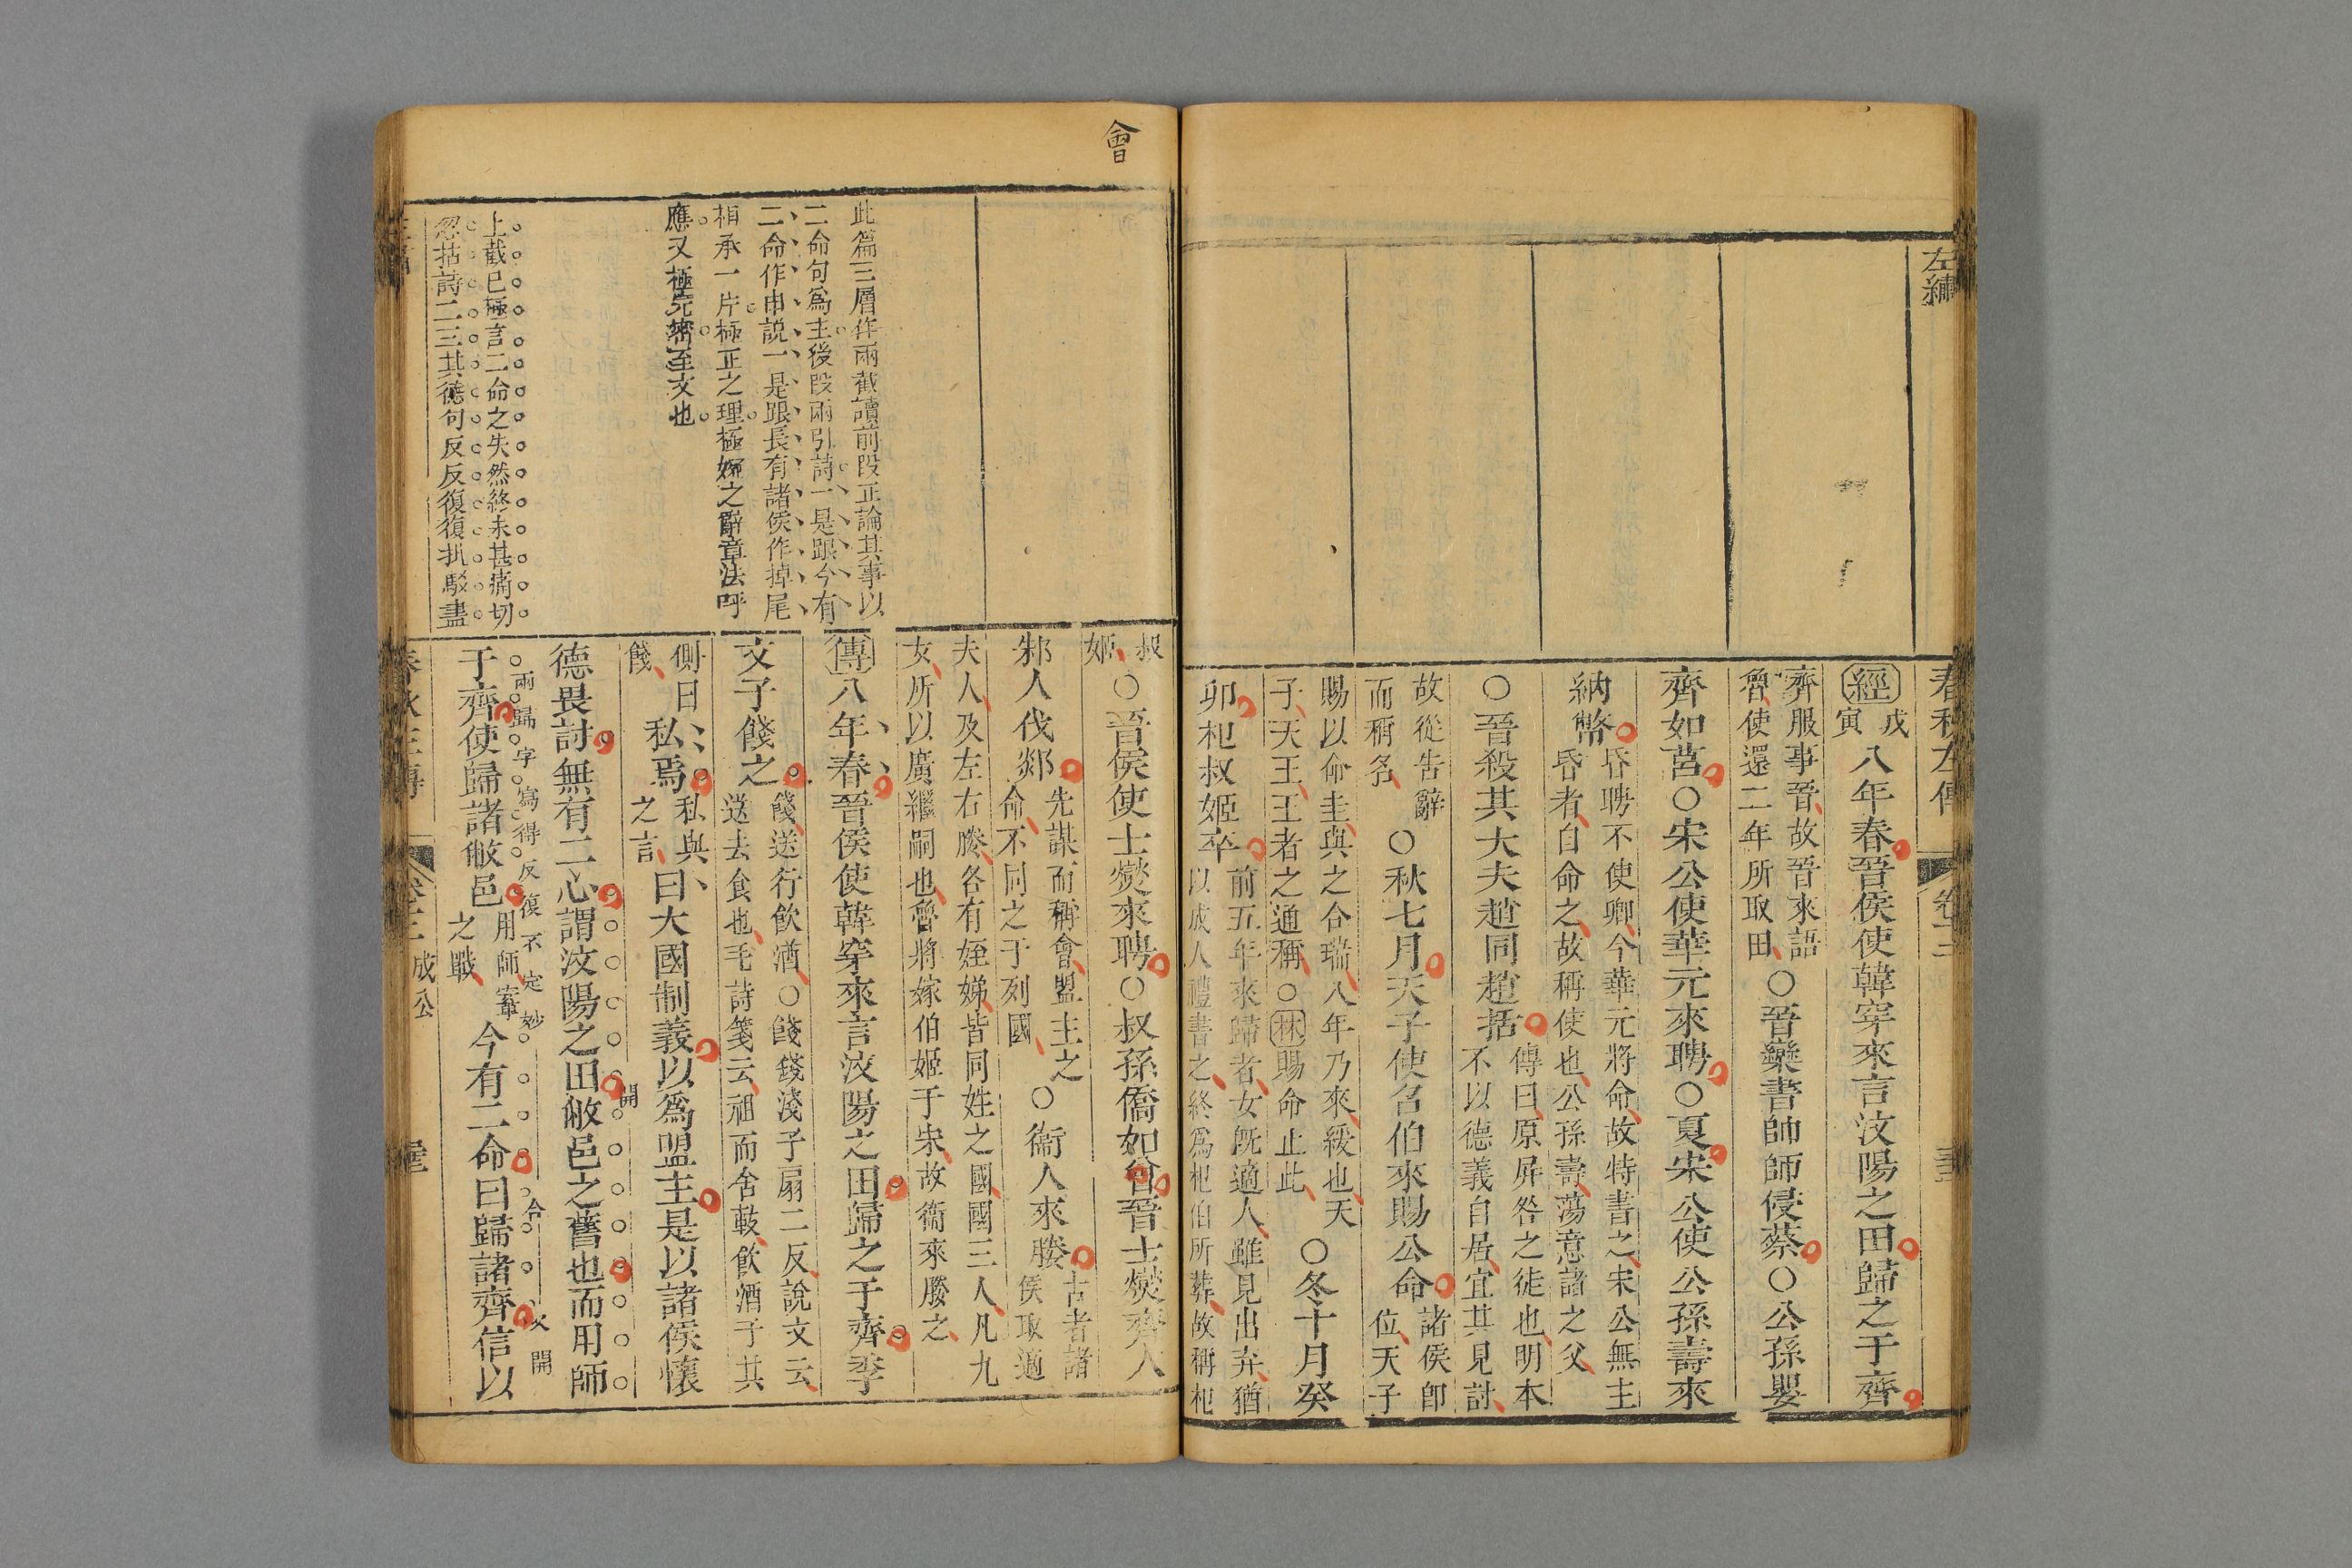 左繡
春秋左傳
卷十二
經戊寅八年春晉侯使韓穿來言汶陽之田歸之于齊
齊服事晉故晉來語魯使還二年所取田○晉欒書帥師侵蔡○公孫嬰
齊如莒○宋公使華元來聘○夏宋公使公孫壽來
納幣昏聘不使卿今華元將命故特書之宋公無主昏者自命之故稱使也公孫壽蕩意諸之父
○晉殺其大夫趙同趙括傳曰原屏咎之徒也明本不以德義自居宜其見討
故從告辭而稱名○秋七月天子使召伯來賜公命諸侯卽位天子
賜以命圭與之合瑞八年乃來緩也天子天王王者之通稱○林賜命止此○冬十月癸
卯杞叔姬卒前五年來歸者女旣適人雖見出弃猶以成人禮書之終爲杞伯所葬故稱杞
會
叔姬○晉侯使士燮來聘○叔孫僑如會晉士燮齊人
邾人伐郯先謀而稱會盟主之命不同之于列國○衞人來媵古者諸侯取適
夫人及左右媵各有姪娣皆同姓之國國三人凡九女所以廣繼嗣也魯將嫁伯姬于宋故衞來媵之
此篇三層作兩截讀前段正論其事以
二命句爲主後段兩引詩一是跟今有
二命作申說一是跟長有諸侯作掉尾
相承一片極正之理極婉之辭章法呼
應又極完密至文也
傳八年春晉侯使韓穿來言汶陽之田歸之于齊季
文子餞之餞送行飲酒○餞錢淺子扇二反說文云送去食也毛詩箋云祖而舍軷飲酒于其
側曰餞私焉私與之言曰大國制義以爲盟主是以諸侯懷
德畏討無有二心謂汶陽之田敝邑之舊也而用師
開
上截已極言二命之失然終未甚痛切
忽拈詩二三其德句反反復復扒駁盡
兩歸字寫得反復不定妙
合
又開
于齊使歸諸敝邑用師鞌之戰今有二命曰歸諸齊信以
春秋左傳
成公